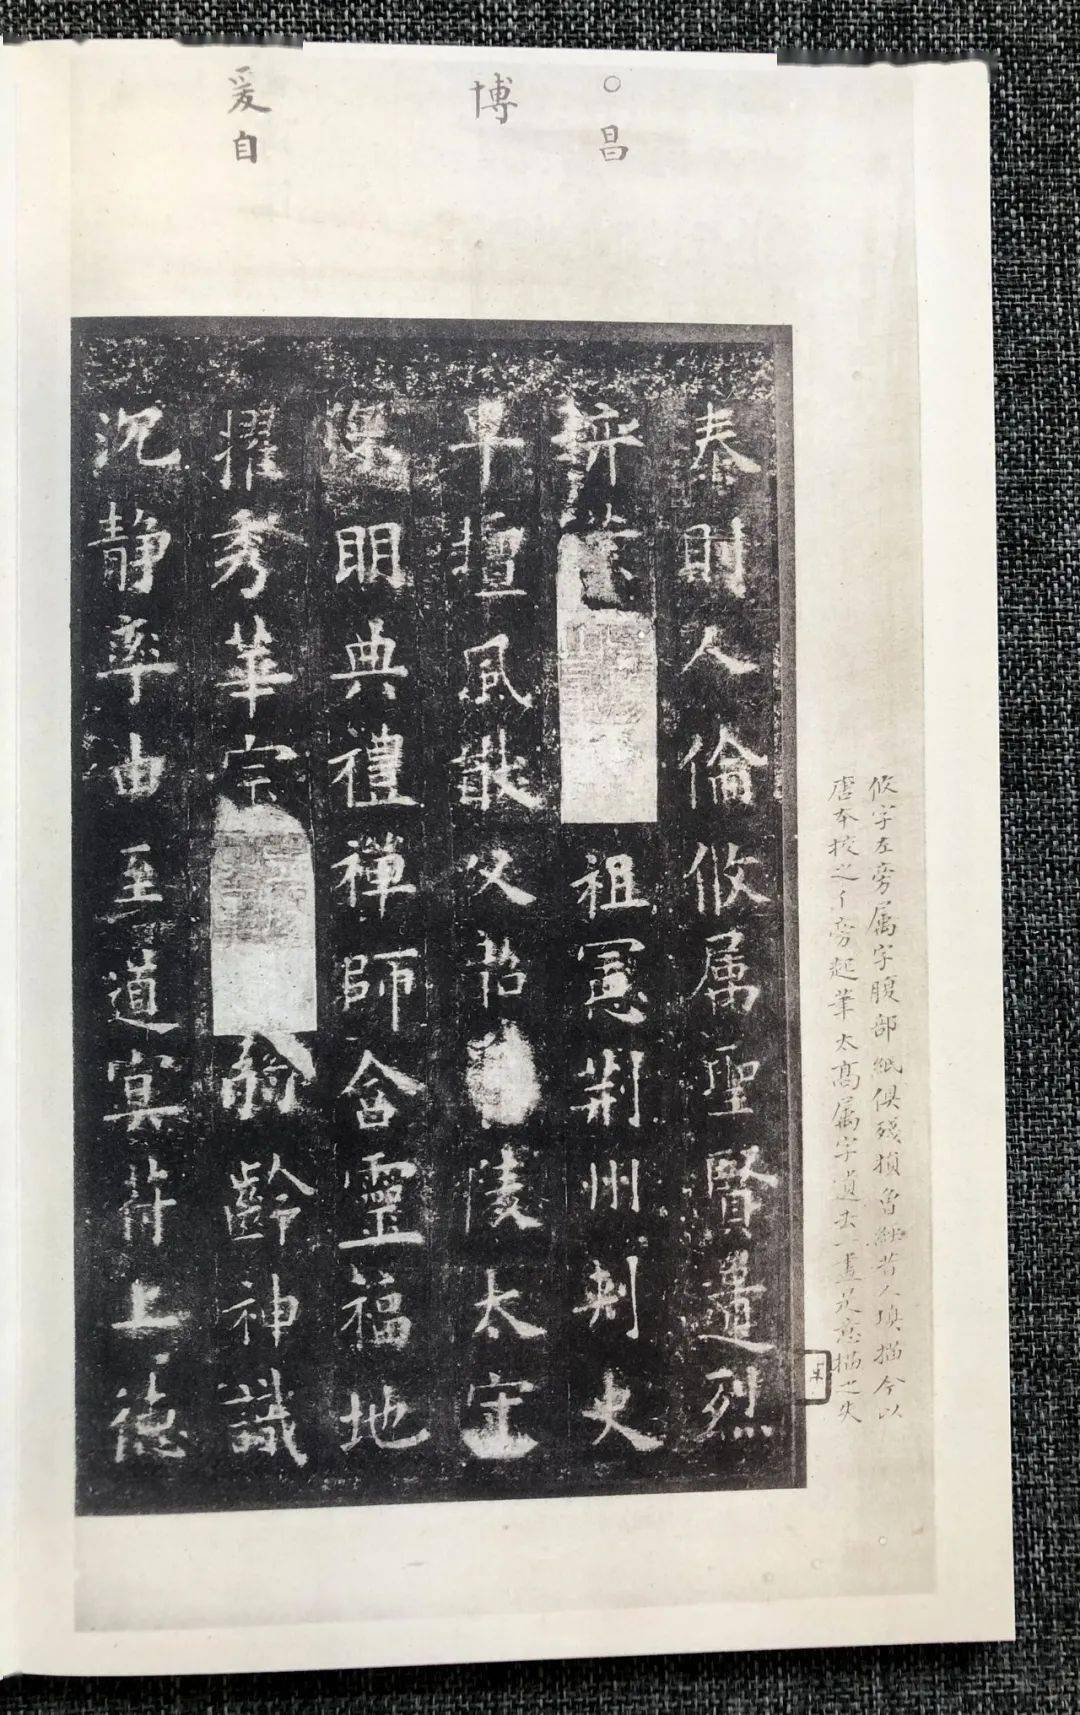 昌
博
爰自
泰則人倫攸属聖賢遺烈
祖憲荊州刺史
早擅風猷父韶陵太守
深明典禮禅師含靈福地
擢秀華宗齡神識
沉静率由至道冥符上德
攸字左旁属字腹部紙俱殘損曾經昔人填描今以
唐本校之亻旁起筆太高属字遺去一畫是意描之失